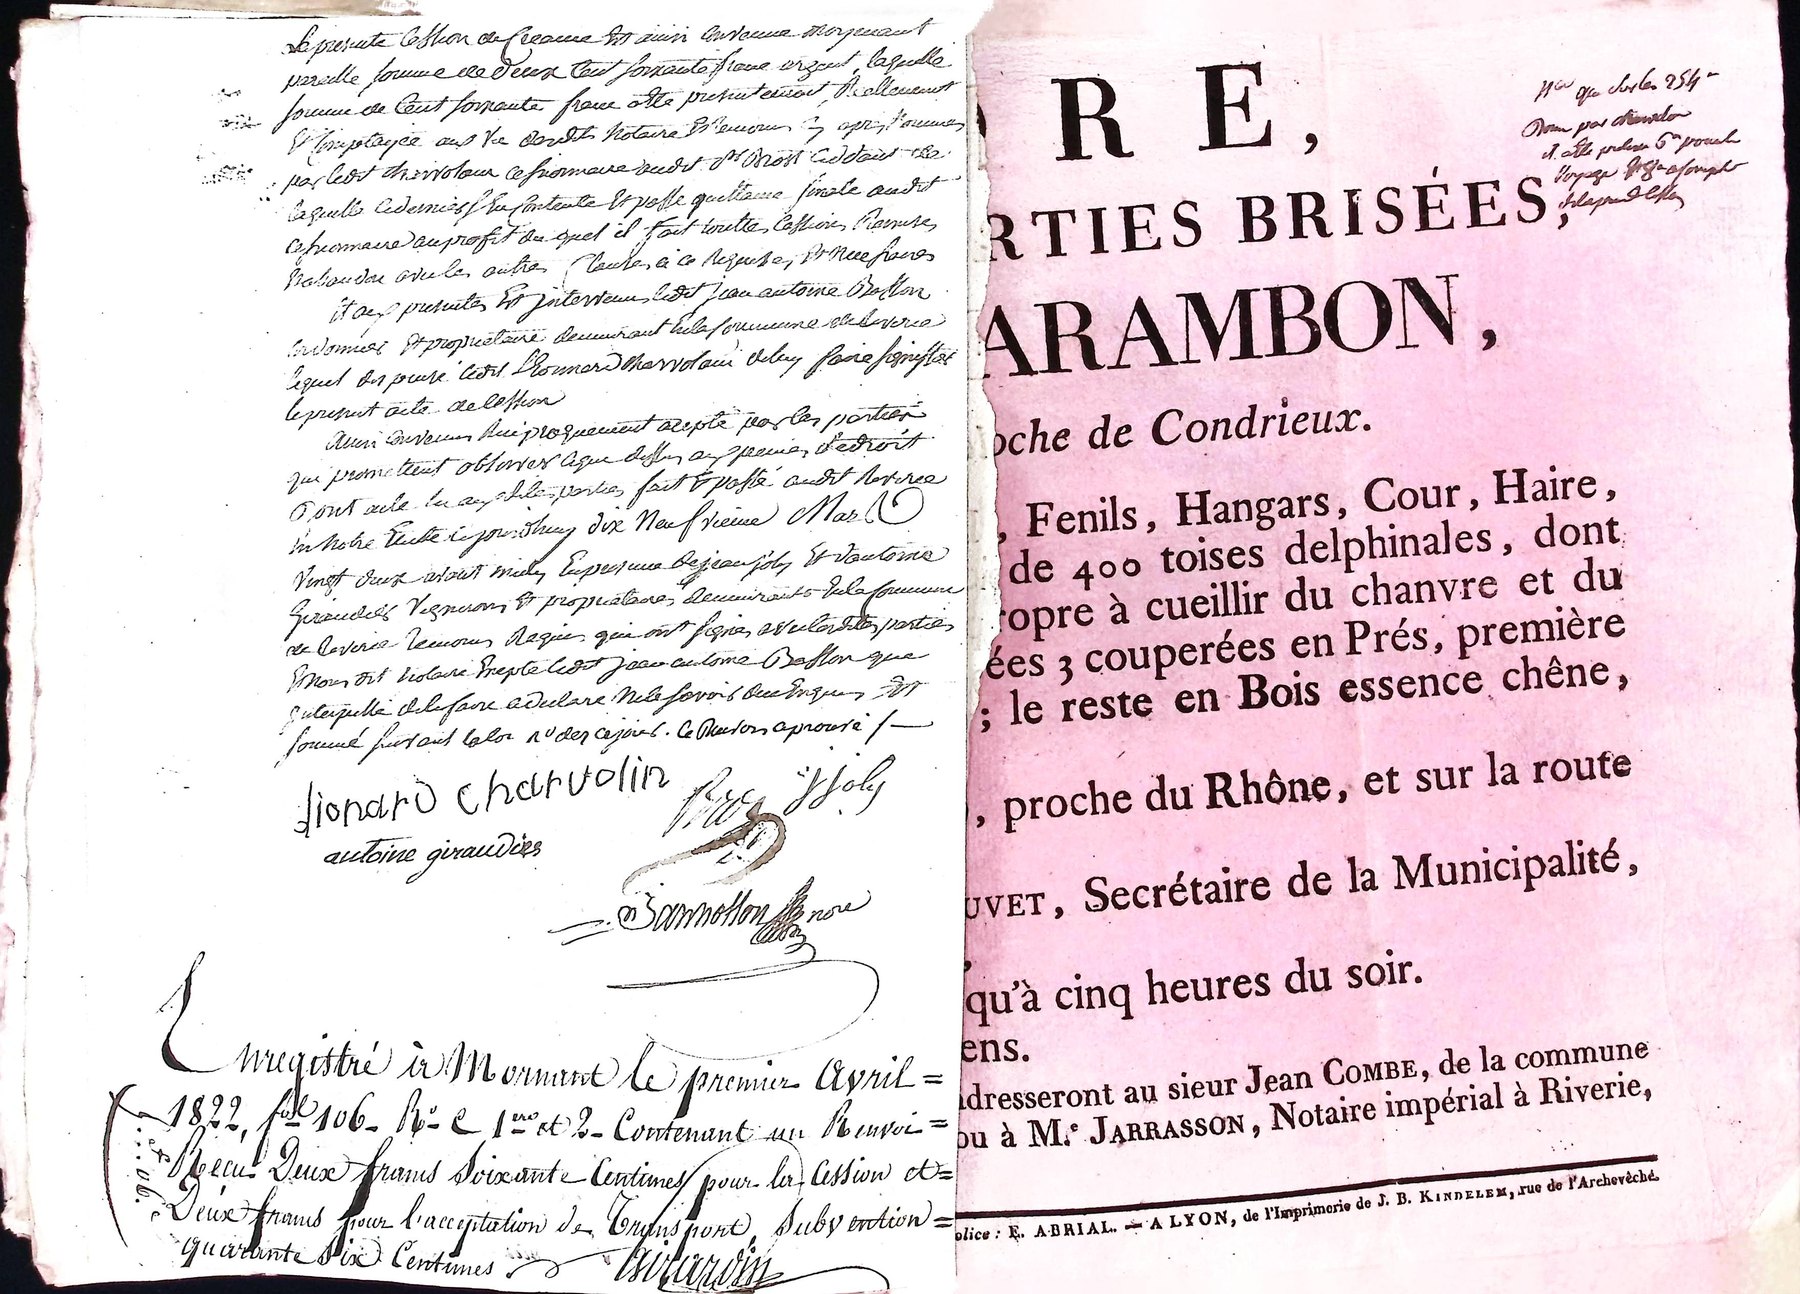 Le presente Cession de Creance est ainsi convenue moyenant
pareille somme de deux Cent soixante franc argent, laquelle
somme de Cent soixante franc a été presentement, Reellement
Et Comptayée aux Vu desdits Notaire et temoins
par ledit Charvolain cessionnaire audit
laquelle ce dernier s'en contente et passe quittance finale audit
cessionnaire au profit du quel il fait touttes Cessions Remises
les autres Clauses à ce Requises,
Et aux presentes Est Intervenu ledit jean antoine Besson
Cordonnier Et propriétaire demeurant En la Commune de Riverie
lequel dispense ledit Charvolain de luy faire signifier
le present acte de Cession
Ainsi Convenu Reciproquement accepté par les parties
qui promettent observer aux peines de droit
Dont acte lu aux dites parties fait Et passé audit Riverie
En notre Etude ce jourdhuy dix Neufvieme Mars
Vingt deux avant midy En presence de jean joly Et d'antoine
Giraudier Vignerons Et propriétaires demeurants En la Commune
de Riverie temoins Requis qui ont signés avec lesdites parties
Et Nous dit Notaire Excepté ledit jean antoine Besson que
interpellé de le faire a declaré Ne le savoir de ce Enquis Et
sommé suivant la loi
lionard charvolin
J Joly
antoine giraudier
nore
Enregistré à Mornant le premier Avril =
1822, fol 106. Ro C 1ere et 2. Contenant un Renvoi =
Recu Deux francs Soixante Centimes pour la Cession et =
Deux francs pour l'acceptation de Transport, Subvention =
quarante Six Centimes
RE,
RTIES BRISÉES,
ARAMBON,
oche de Condrieux.
, Fenils, Hangars, Cour, Haire,
de 400 toises delphinales, dont
ropre à cueillir du chanvre et du
ées 3 couperées en Prés, première
; le reste en Bois essence chêne,
, proche du Rhône, et sur la route
UVET, Secrétaire de la Municipalité,
qu'à cinq heures du soir.
ens.
adresseront au sieur Jean COMBE, de la commune
ou à M.e JARRASSON, Notaire impérial à Riverie,
olice : E. ABRIAL. — A LYON, de l'Imprimerie de J. B. KINDELEM, rue de l'Archevêché.